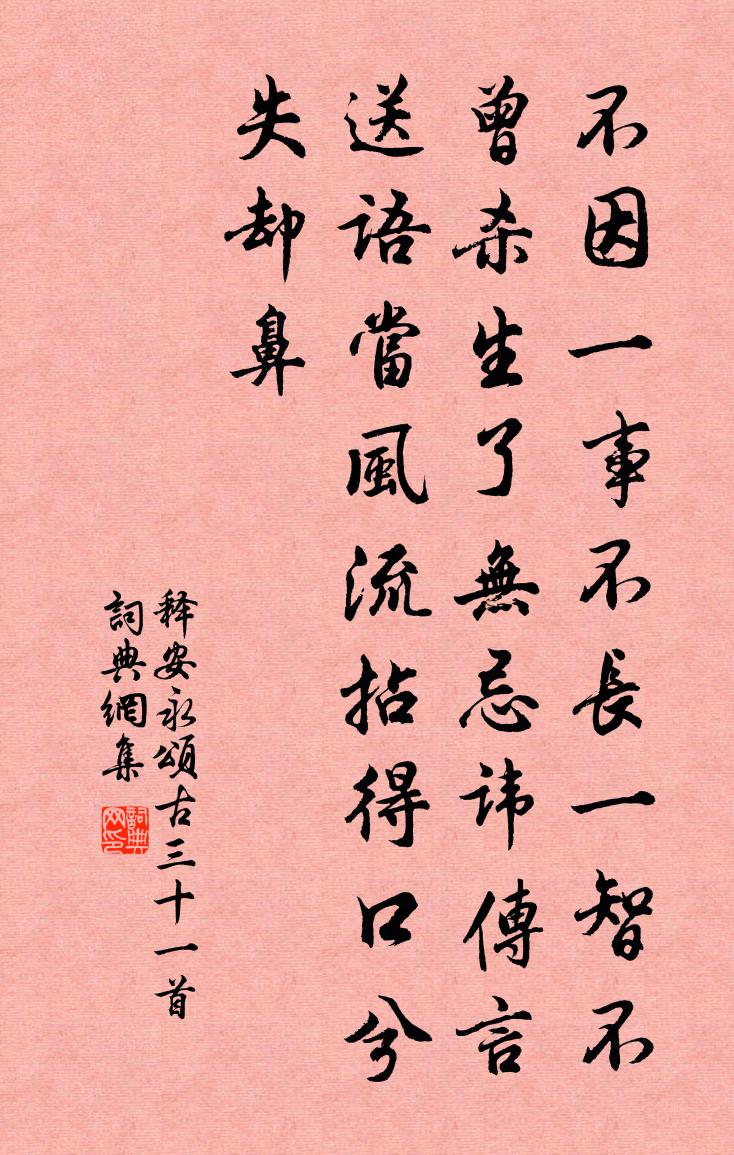 不因一事不長一智不
曾杀生了無忌諱傳言
送語當風流拈得口兮
失却鼻
释安永頌古三十一首
詞典網集
詞典网印